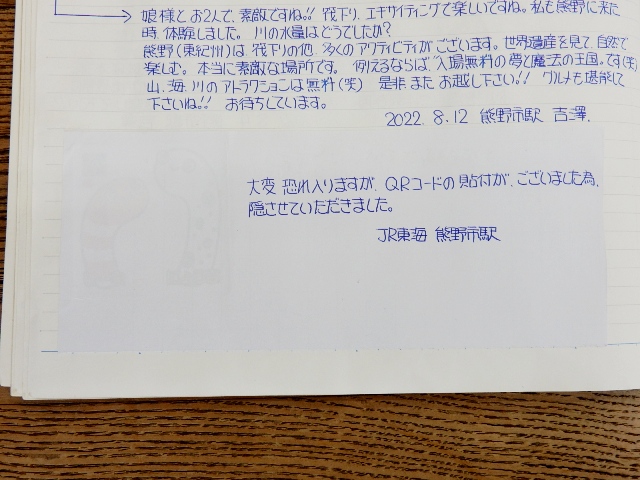 娘様とお2人で、素敵ですね!! 筏下り、エキサイティングで楽しいですね。私も熊野に来た
時、体験しました。川の水量はどうでしたか?
熊野(東紀州)は、筏下りの他、多くのアクティビティがございます。世界遺産を見て、自然で
楽しむ。本当に素敵な場所です。例えるならば"入場無料の夢と魔法の王国"です(笑)
山、海、川のアトラクションは無料(笑) 是非、またお越し下さい!! グルメも堪能して
下さいね!! お待ちしています。
2022.8.12 熊野市駅 吉澤.
大変恐れ入りますが、QRコードの貼付が、ございました為、
隠させていただきました。
JR東海 熊野市駅